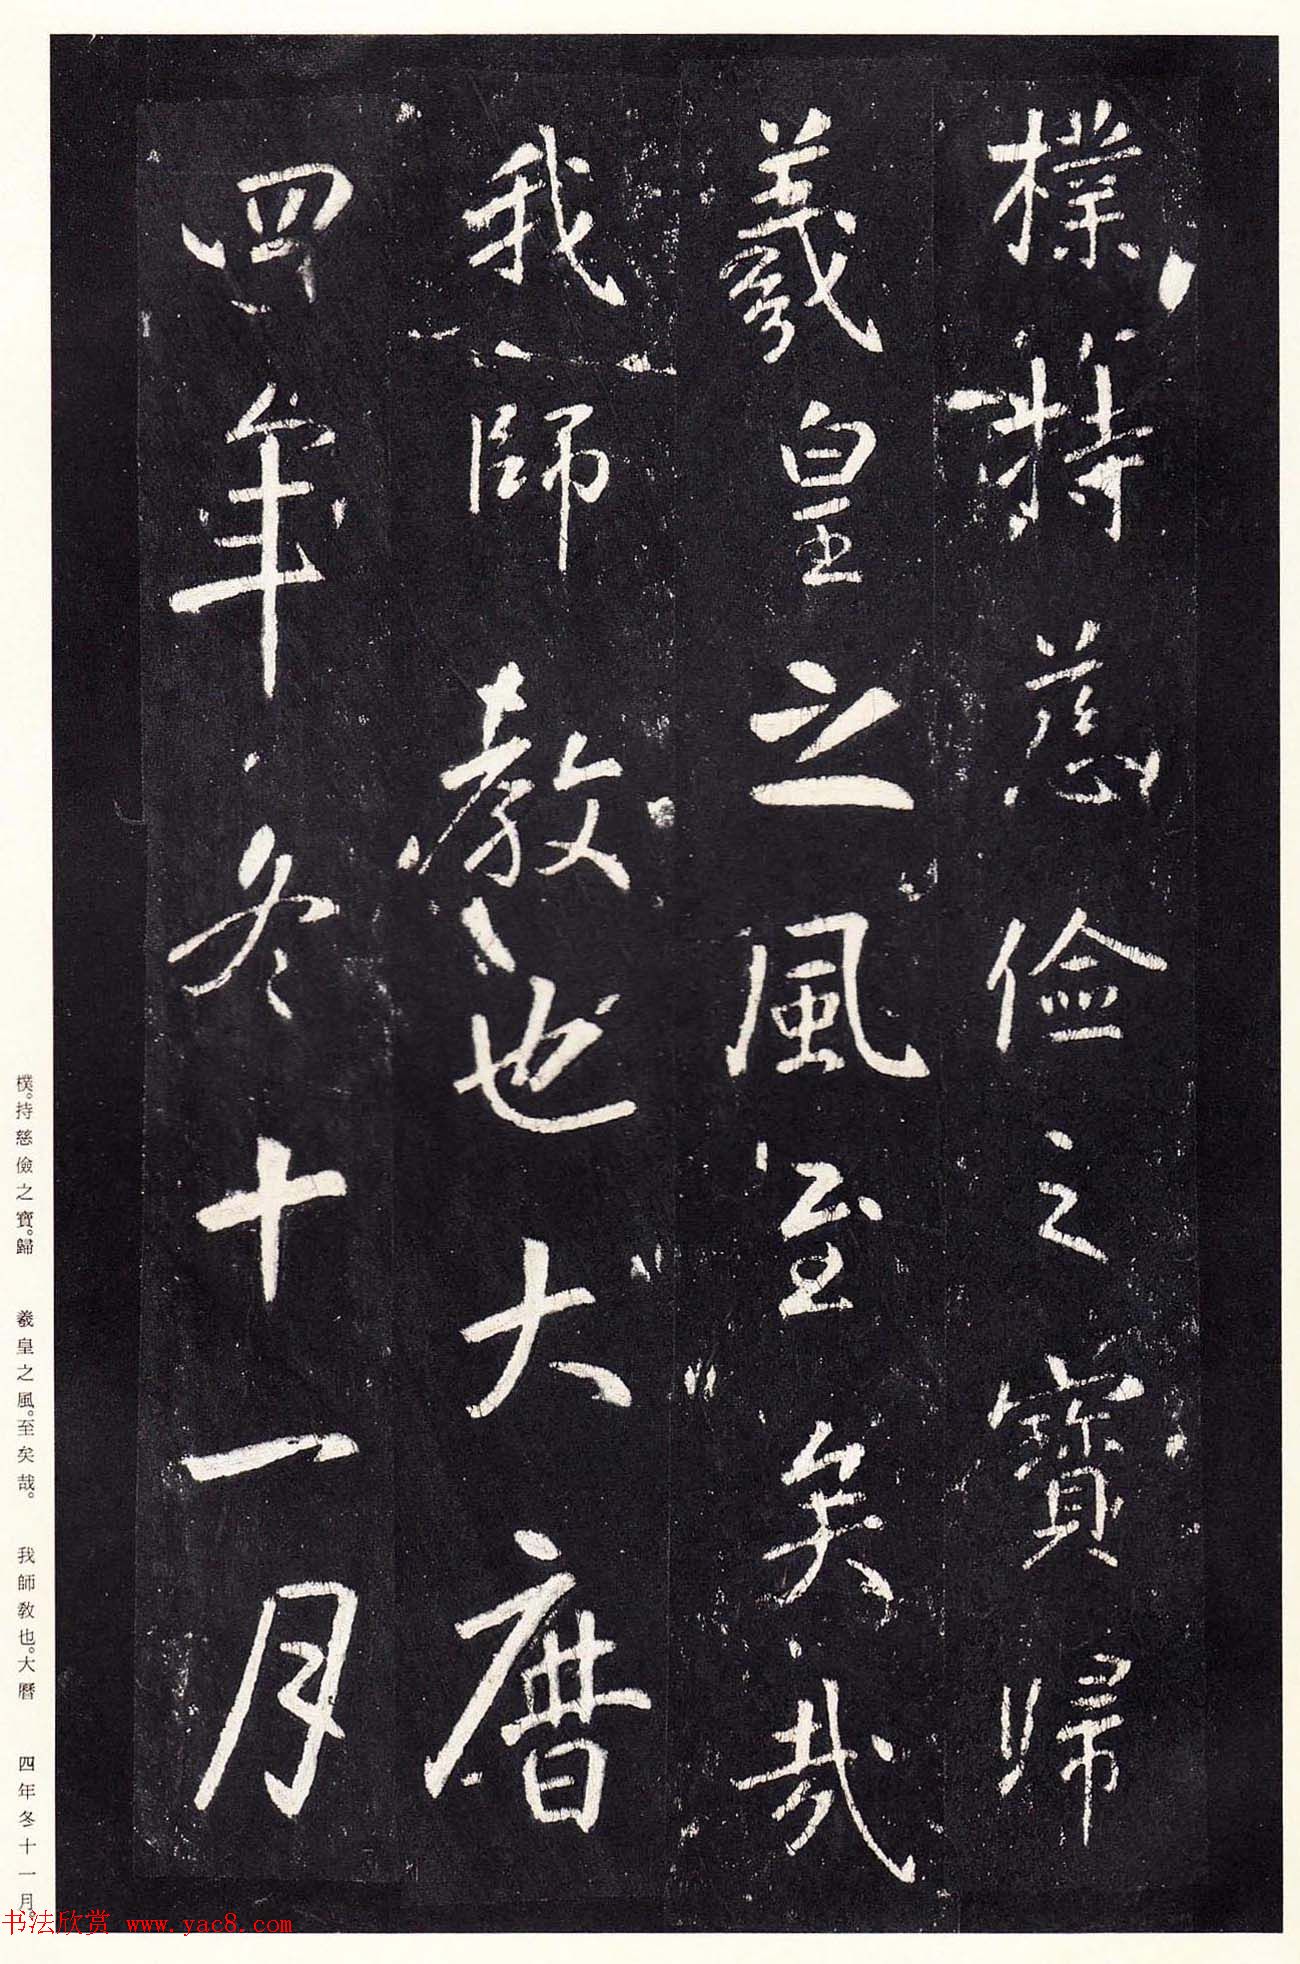 樸持慈儉之寶歸
羲皇之風至矣哉
我師教也大曆
四年冬十一月
樸。持慈儉之寶。歸　羲皇之風。至矣哉。　我師教也。大曆　四年冬十一月。
书法欣赏 www.yac8.com